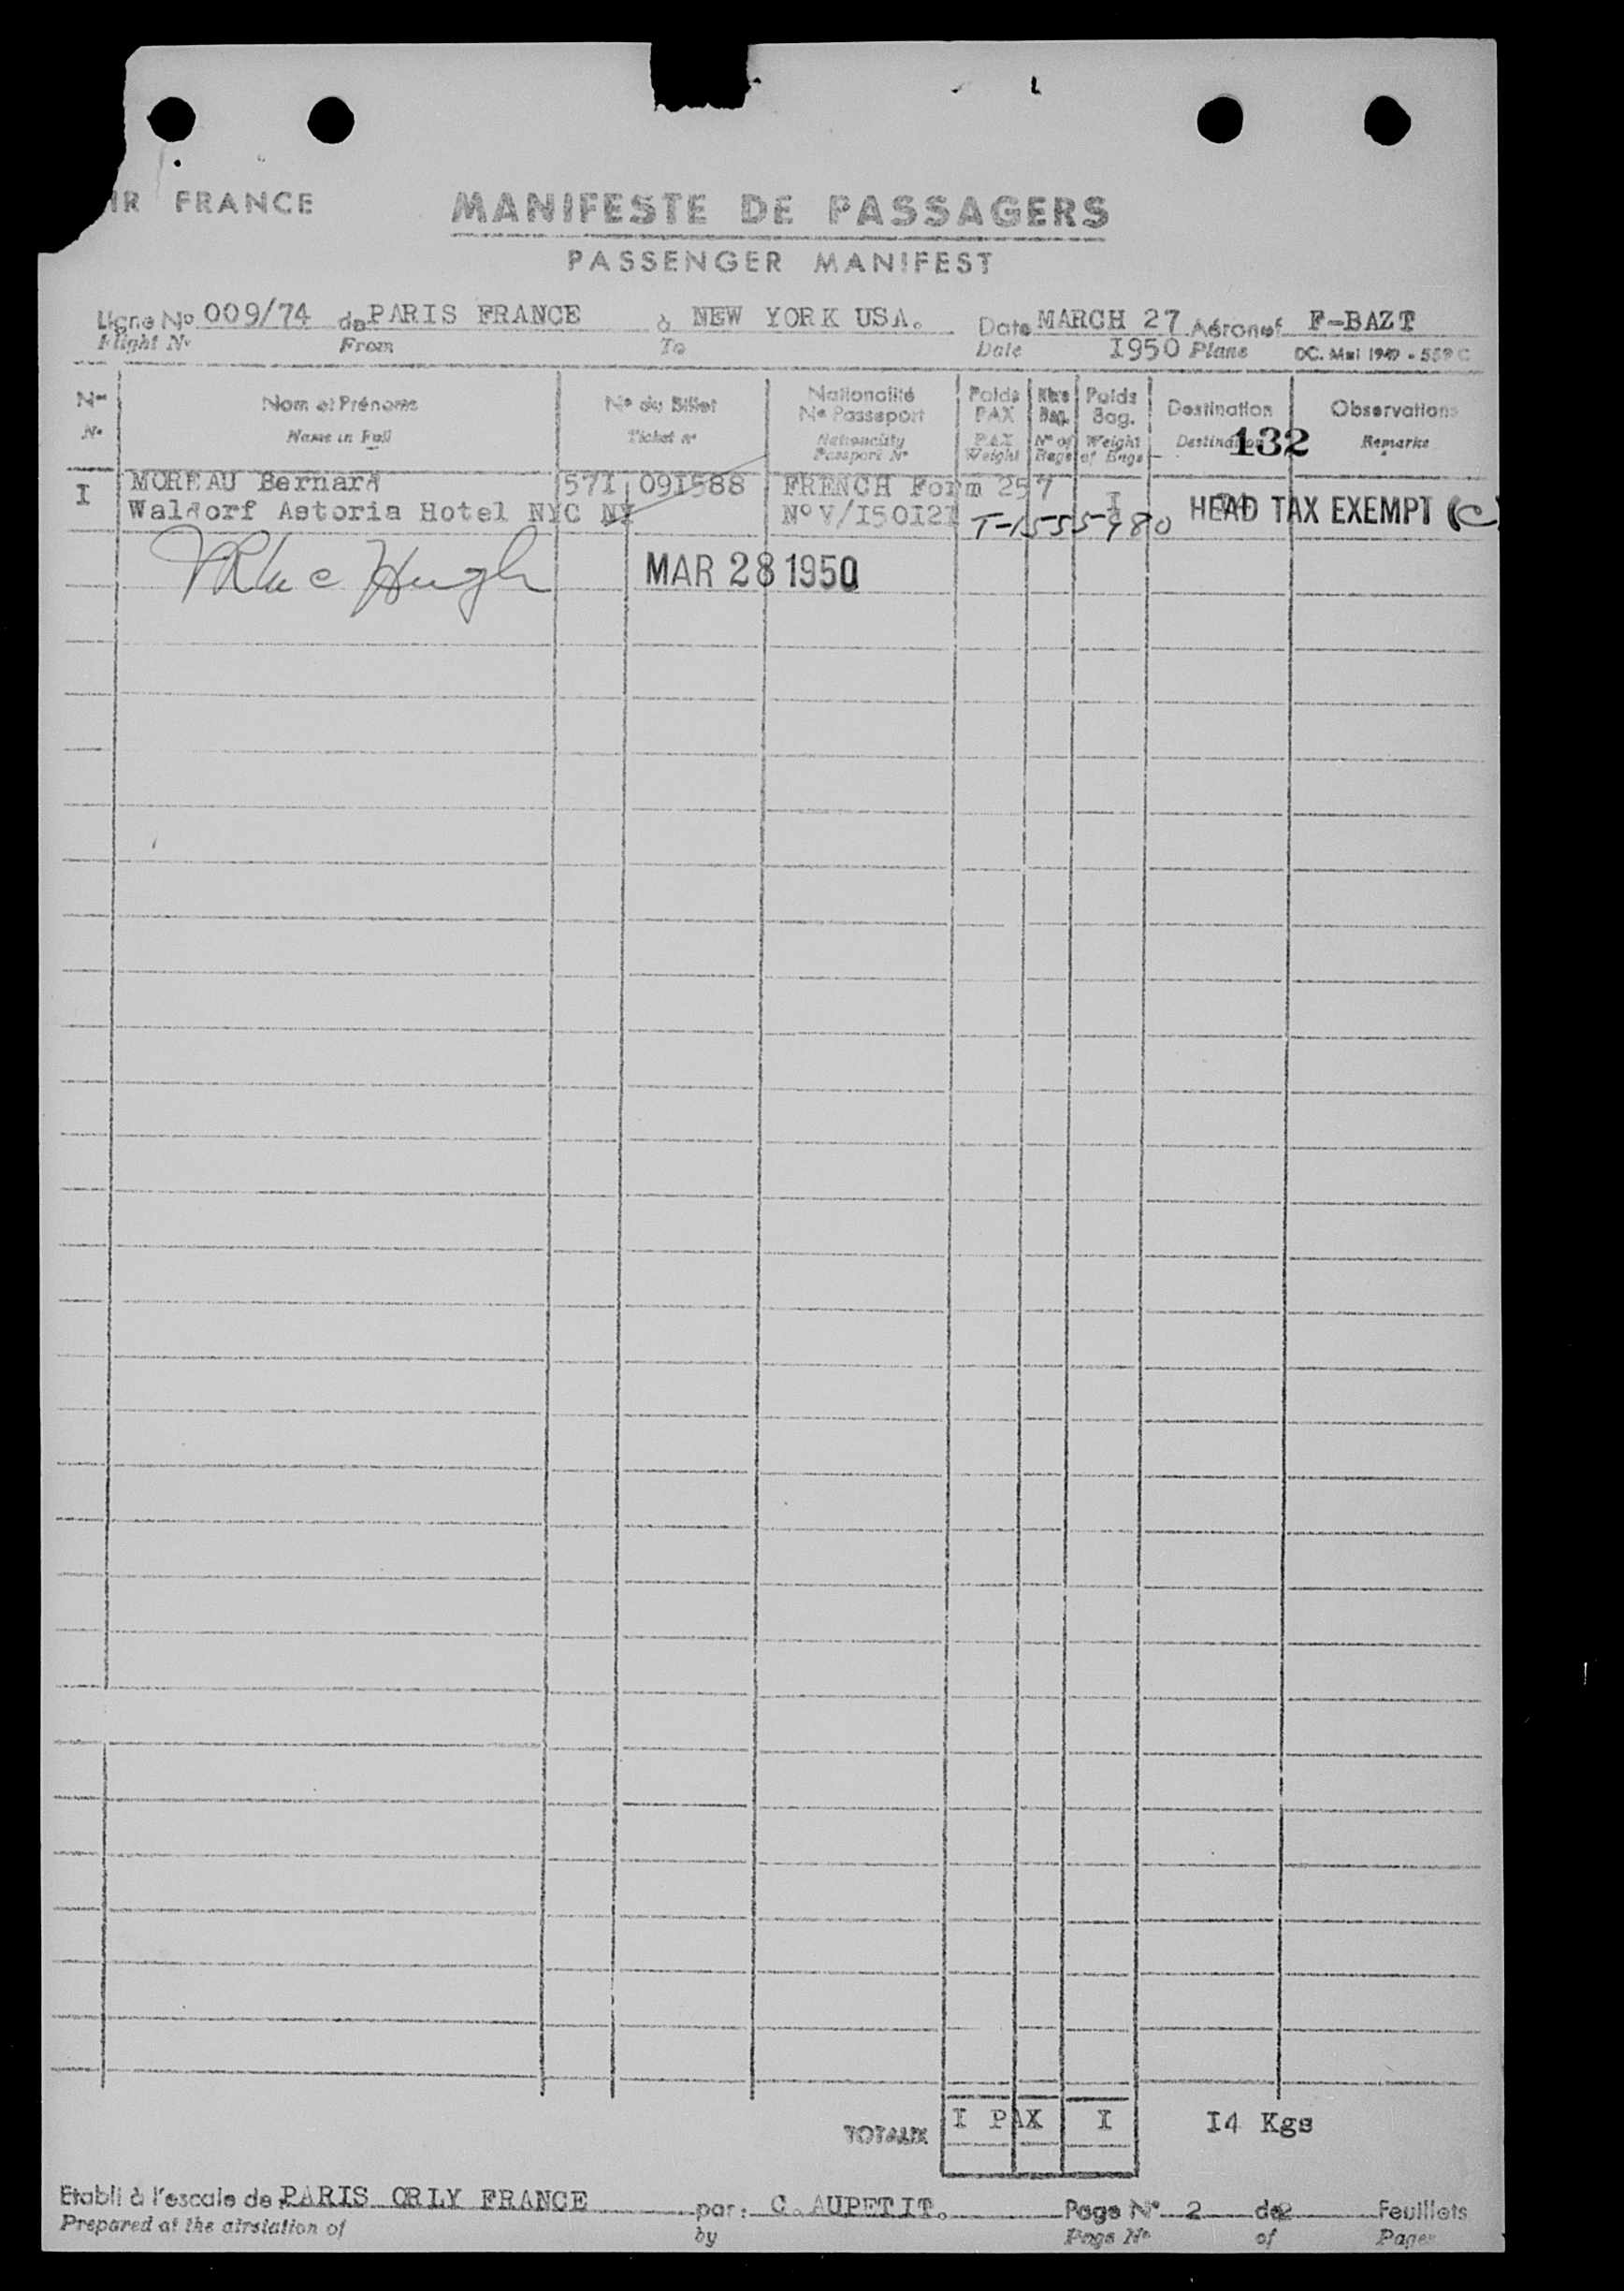 IR FRANCE
MANIFESTE DE PASSAGERS
PASSENGER MANIFEST
Ligne No 009/74 de PARIS FRANCE à NEW YORK USA. Date MARCH 27 Aéronef F-BAZT
Flight No From To Date I950 Plane DC. Mai 1949 - 559 C
Nos Nom et Prénoms No du Billet Nationalité No Passeport Poids PAX Nbre Bag. Poids Bag. Destination Observations
No Name in Full Ticket no Nationality Passport No PAX Weight No of Bags Weight of Bags Destination Remarks
132
I MOREAU Bernard 571 09I588 FRENCH Form 257 I
Waldorf Astoria Hotel NYC NY No V/I50I2I T-1555980 HEAD TAX EXEMPT (C)
MAR 28 1950
TOTAUX I PAX I I4 Kgs
Etabli à l'escale de PARIS ORLY FRANCE par: C. AUPETIT. Page No 2 de 2 Feuillets
Prepared at the airstation of by Page No of Pages